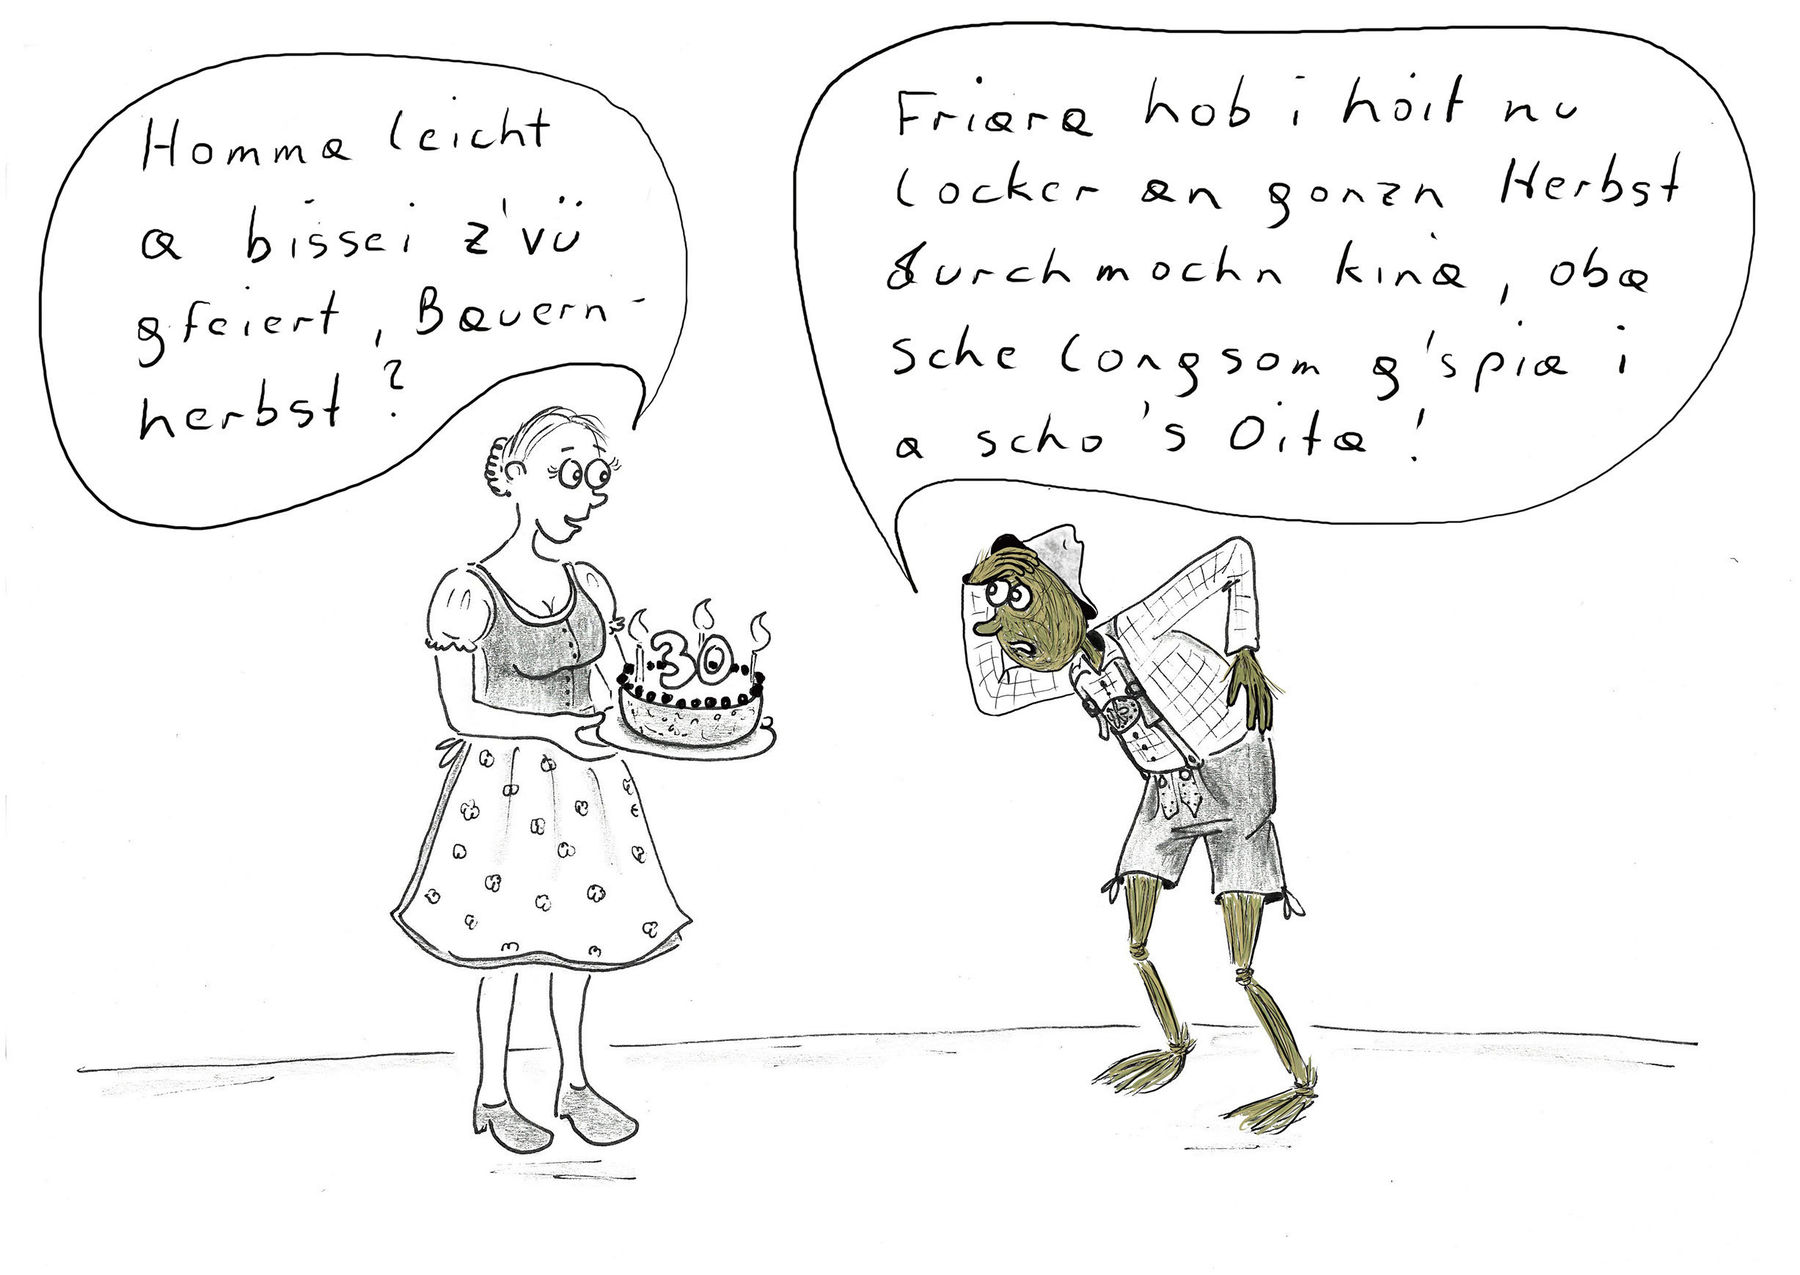 Homma leicht
a bissei z'vü
gfeiert, Bauern-
herbst?
Friara hob i hoit nu
locker an gonzn Herbst
durchmochn kina, oba
sche longsom g'spia i
a scho 's Oita!
30